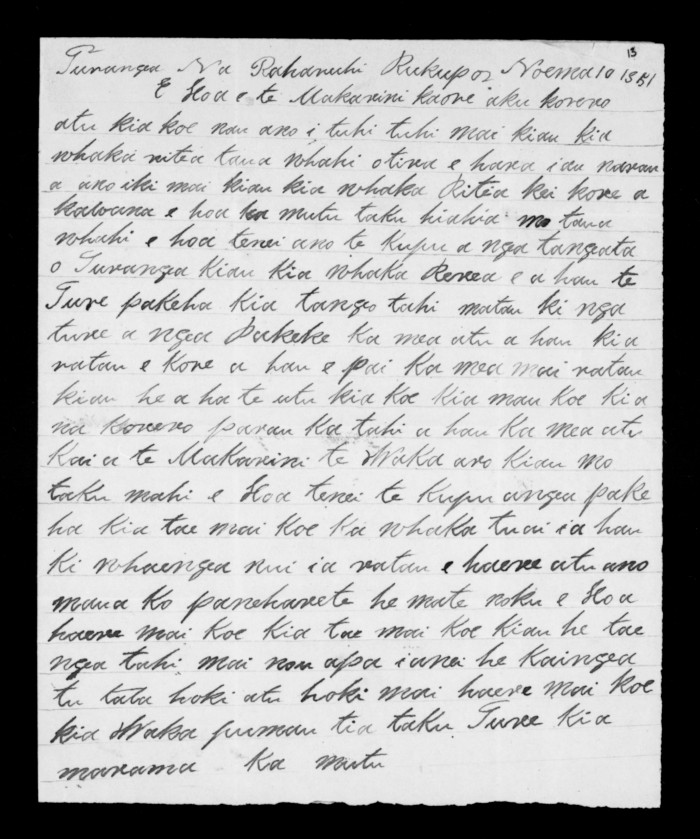 13
Turanga Na Raharuhi Rukupo Noema 10 1851
E Hoa e te Makarini kaore aku korero
atu kia koe nau ano i tuhi tuhi mai kiau kia
whaka ritea taua whahi otira e hara iau narau
a ano iki mai kiau kia whaka Ritea kei kore a
kawana e hoa ka mutu taku hiahia mo taua
whahi e hoa tenei ano te Kupu a nga tangata
o Turanga Kiau Kia whaka Rerea e a hau te
Ture pakeha Kia tango tahi matau ki nga
ture a ngea Pakeke Ka mea atu a hau kia
ratau e Kore a hau e pai Ka mea mai ratau
kiau he a ha te utu kia Koe Kia mau Koe Kia
na Korero parau Ka tahi a hau Ka mea atu
Kai a te Makarini te Waka aro Kiau mo
taku mahi e Hoa tenei te Kupu angea pake
ha Kia tae mai Koe Ka whaka tu ai ia hau
Ki whaengea nui ia ratau e haere atu ano
maua Ko paneharete he mate noku e Hoa
haere mai Koe Kia tae mai Koe Kiau he tae
ngea tahi mai nou apa ianei he Kaingea
tu tata hoki atu hoki mai haere mai Koe
kia Waka pumau tia taku Ture Kia
marama Ka mutu